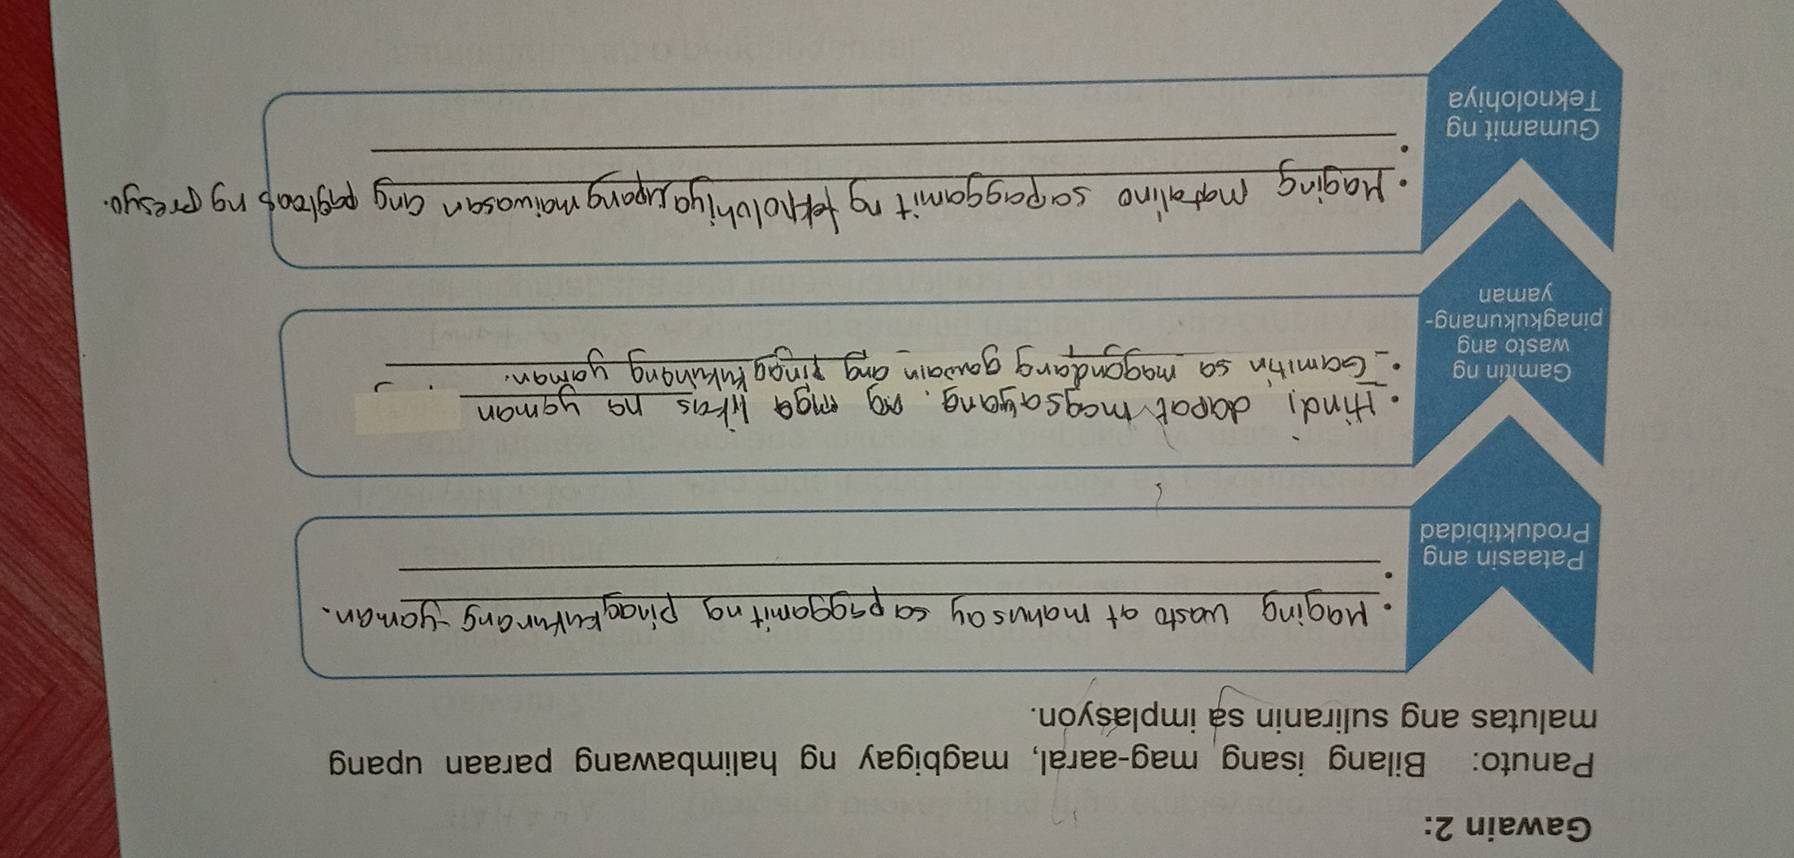 Gawain 2:
Panuto: Bilang isang mag-aaral, magbigay ng halimbawang paraan upang
malutas ang suliranin sa implasyon.
Pataasin ang
Produktibidad
• Maging wasto at mahusay sa paggamit ng pinagkukunang-yaman.
•
Gamitin ng
wasto ang
pinagkukunang-
yaman
• Hindi dapat magsayang. ng mga likas na yaman
• Gamitin sa magandang gawain ang pinagkukunang yaman.
Gumamit ng
Teknolohiya
• Maging matalino sa paggamit ng teknolohiya upang maiwasan ang pagtaas ng presyo.
•